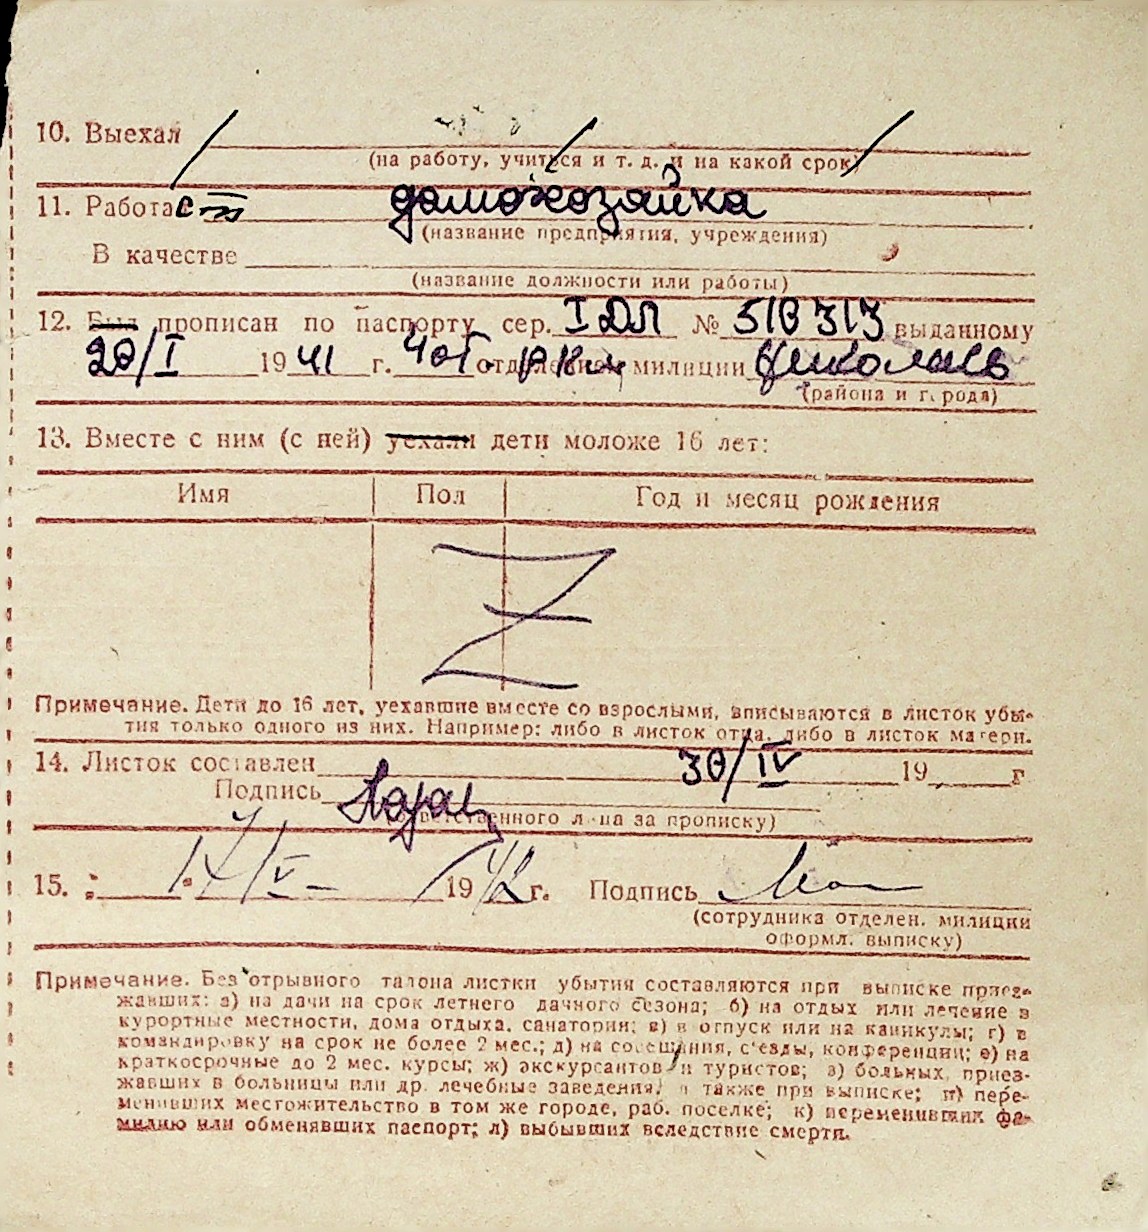 10. Выехал
(на работу, учиться и т. д. и на какой срок)
11. Работает домохозяйка
(название предприятия, учреждения)
В качестве
(название должности или работы)
12. Был прописан по паспорту сер. I ДЛ № 518313 выданному
20/I 1941 г. 4 от. РКМ отделением милиции Николаев
(района и города)
13. Вместе с ним (с ней) уехали дети моложе 16 лет:
Имя Пол Год и месяц рождения
Z
Примечание. Дети до 16 лет, уехавшие вместе со взрослыми, вписываются в листок убы-
тия только одного из них. Например: либо в листок отца, либо в листок матери.
14. Листок составлен 30/IV 19 г
Подпись
(ответственного лица за прописку)
15. 17/V – 1942 г. Подпись
(сотрудника отделен. милиции
оформл. выписку)
Примечание. Без отрывного талона листки убытия составляются при выписке приез-
жавших: а) на дачи на срок летнего дачного сезона; б) на отдых или лечение в
курортные местности, дома отдыха, санатории; в) в отпуск или на каникулы; г) в
командировку на срок не более 2 мес.; д) на совещания, съезды, конференции; е) на
краткосрочные до 2 мес. курсы; ж) экскурсантов и туристов; з) больных, приез-
жавших в больницы или др. лечебные заведения, а также при выписке; и) пере-
менивших местожительство в том же городе, раб. поселке; к) переменивших фа-
милию или обменявших паспорт; л) выбывших вследствие смерти.